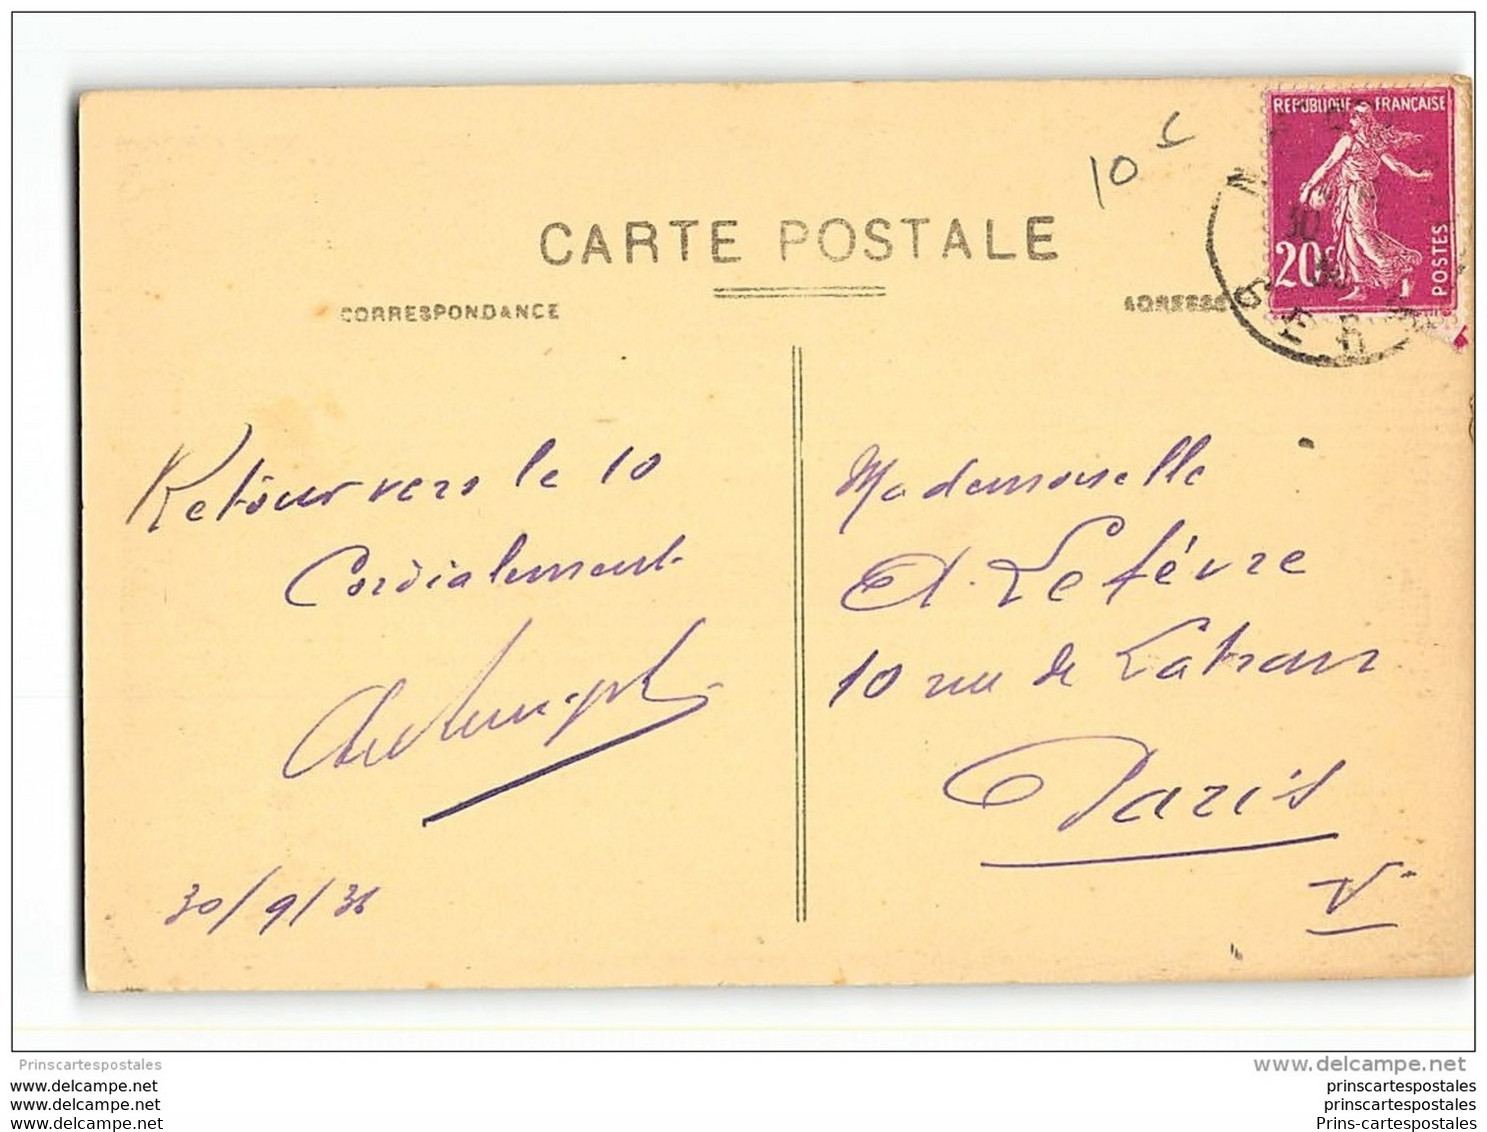 10 c
REPUBLIQUE FRANÇAISE
20c
POSTES
GERS
CARTE POSTALE
CORRESPONDANCE
ADRESSE
Retour vers le 10
Cordialement
30/9/36
Mademoiselle
A. Lefèvre
10 rue de Latran
Paris
V
Prinscartespostales
www.delcampe.net
www.delcampe.net
www.delcampe.net
www.delcampe.net
prinscartespostales
prinscartespostales
Prins-cartespostales